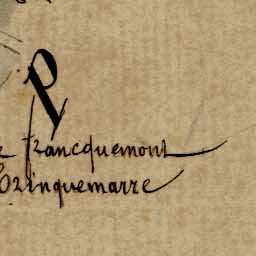 P
francquemont
Brinquemarre